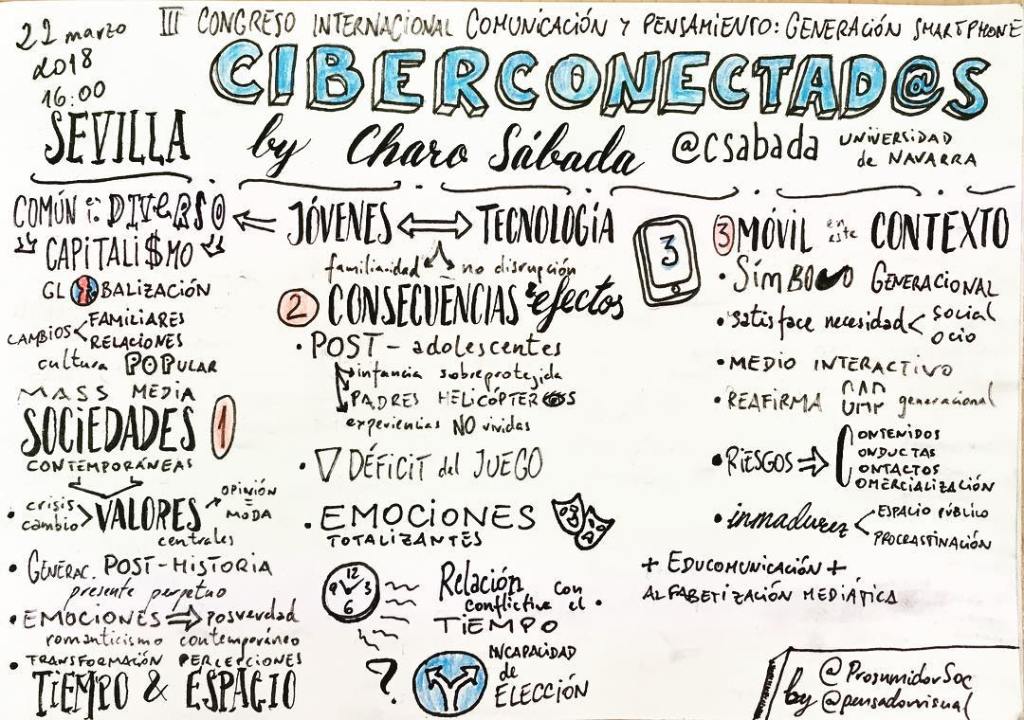 22 marzo
2018
16:00
SEVILLA
III CONGRESO INTERNACIONAL COMUNICACIÓN Y PENSAMIENTO: GENERACIÓN SMARTPHONE
CIBERCONECTAD@S
by Charo Sábada @csabada UNIVERSIDAD
de NAVARRA
JÓVENES ⟺ TECNOLOGÍA
familiaridad no disrupción
COMÚN DIVERSO
CAPITALI$MO
GLOBALIZACIÓN
CAMBIOS < FAMILIARES
RELACIONES
cultura POPULAR
MASS MEDIA
SOCIEDADES 1
CONTEMPORÁNEAS
• crisis
cambio > VALORES
centrales
OPINIÓN
=
MODA
• GENERAC. POST-HISTORIA
presente perpetuo
• EMOCIONES ⇒ posverdad
romanticismo contemporáneo
• TRANSFORMACIÓN PERCEPCIONES
TIEMPO & ESPACIO
2 CONSECUENCIAS & efectos
• POST - adolescentes
infancia sobreprotegida
PADRES HELICÓPTEROS
experiencias NO vividas
• ▽ DÉFICIT del JUEGO
• EMOCIONES
TOTALIZANTES
12
9 3
6
Relación con
conflictiva el
TIEMPO
?
INCAPACIDAD
de
ELECCIÓN
3
3 MÓVIL en este CONTEXTO
• SÍMBOLO GENERACIONAL
• satisface necesidad < social
ocio
• MEDIO INTERACTIVO
• REAFIRMA GAP generacional
• RIESGOS ⇒ CONTENIDOS
CONDUCTAS
CONTACTOS
COMERCIALIZACIÓN
• inmadurez < ESPACIO PÚBLICO
PROCRASTINACIÓN
+ EDUCOMUNICACIÓN +
ALFABETIZACIÓN MEDIÁTICA
by @ProsumidorSoc
@pensadorvisual